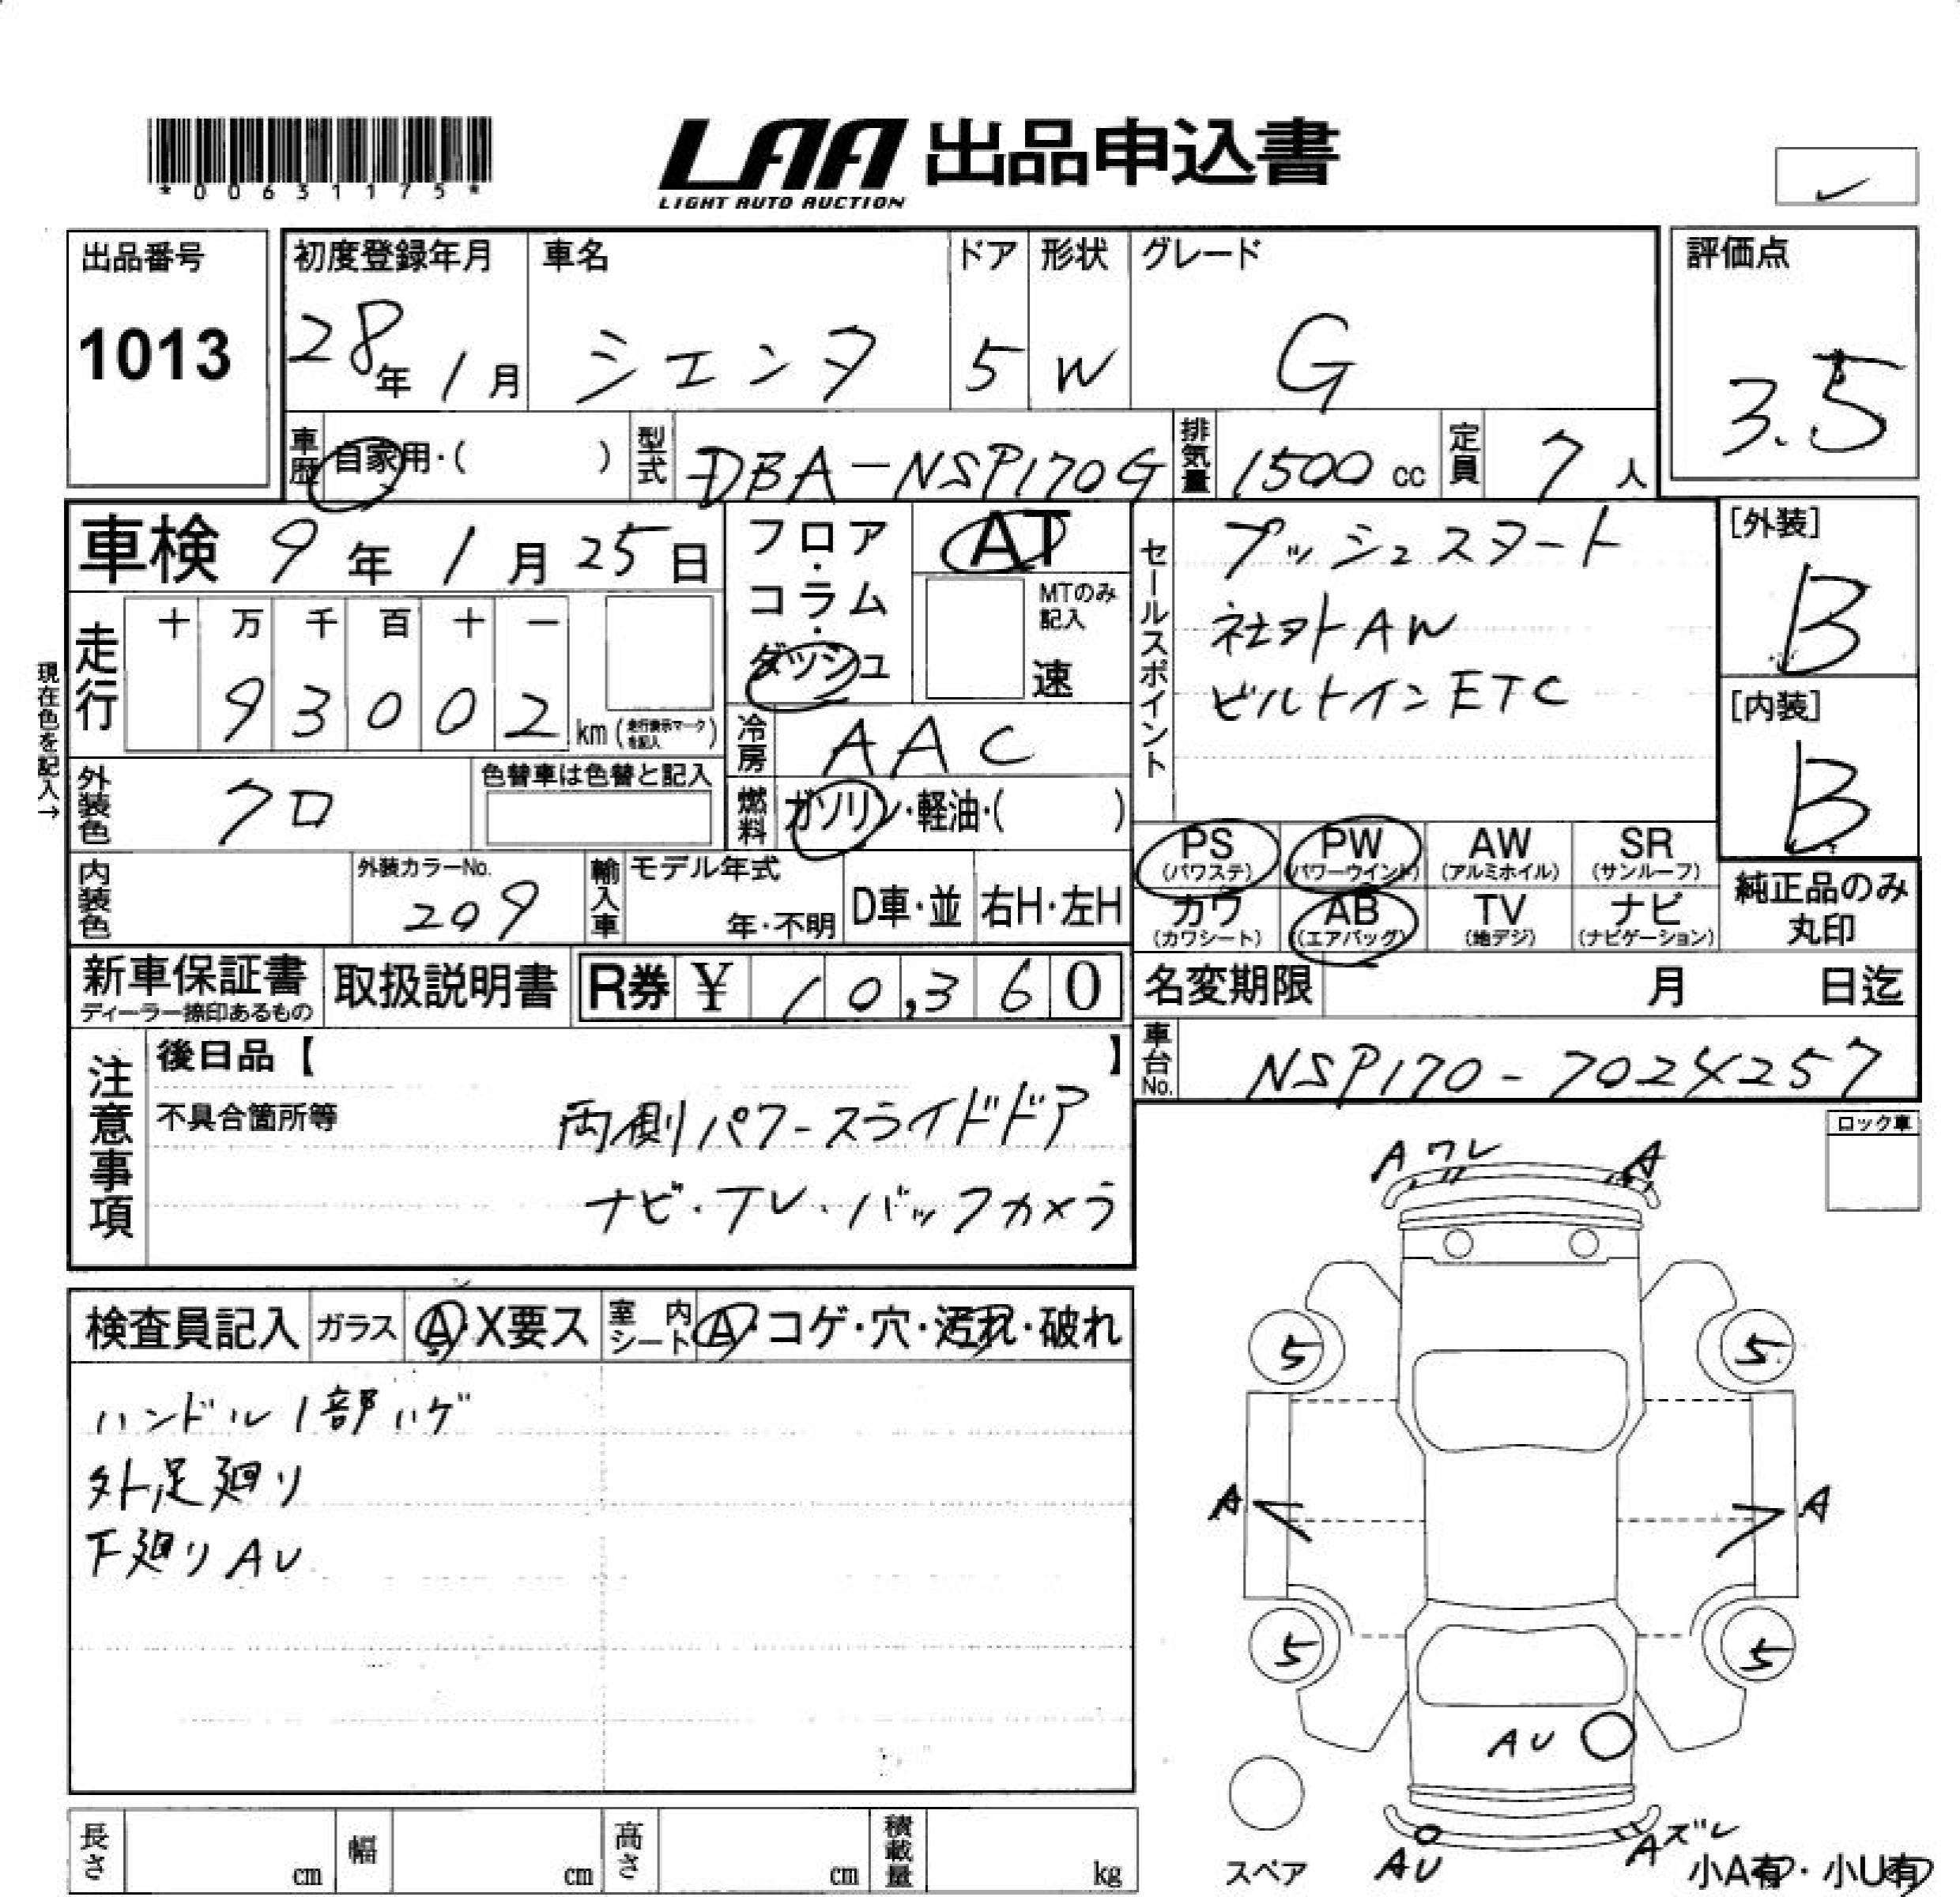 *00631175*
LAA 出品申込書
LIGHT AUTO AUCTION
出品番号
1013
初度登録年月
28年 1月
車名
シエンタ
ドア
5
形状
W
グレード
G
評価点
3.5
車歴 自家用・( )
型式 DBA-NSP170G
排気量 1500 cc
定員 7 人
車検 9年 1月 25日
フロア・コラム・ダッシュ
AT
MTのみ記入
速
セールスポイント
プッシュスタート
社外AW
ビルトインETC
[外装]
B
[内装]
B
現在色を記入→
走行
十 万 千 百 十 一
9 3 0 0 2 km (走行表示マークを記入)
冷房 AAC
燃料 ガソリン・軽油・( )
外装色 クロ
色替車は色替と記入
内装色
外装カラーNo.
209
輸入車
モデル年式
年・不明
D車・並
右H・左H
PS (パワステ)
PW (パワーウインド)
AW (アルミホイル)
SR (サンルーフ)
カワ (カワシート)
AB (エアバッグ)
TV (地デジ)
ナビ (ナビゲーション)
純正品のみ丸印
新車保証書
ディーラー捺印あるもの
取扱説明書
R券 ¥ 10,360
名変期限 月 日迄
車台No. NSP170-7024257
注意事項
後日品【 】
不具合箇所等
両側パワースライドドア
ナビ・TV・バックカメラ
ロック車
検査員記入
ガラス A・X要ス
室内シート A・コゲ・穴・汚れ・破れ
ハンドル1部ハゲ
外足廻り
下廻りAU
Aワレ
A
5
5
A
A
5
5
AU
AU
Aズレ
スペア
小A有・小U有
長さ cm
幅 cm
高さ cm
積載量 kg